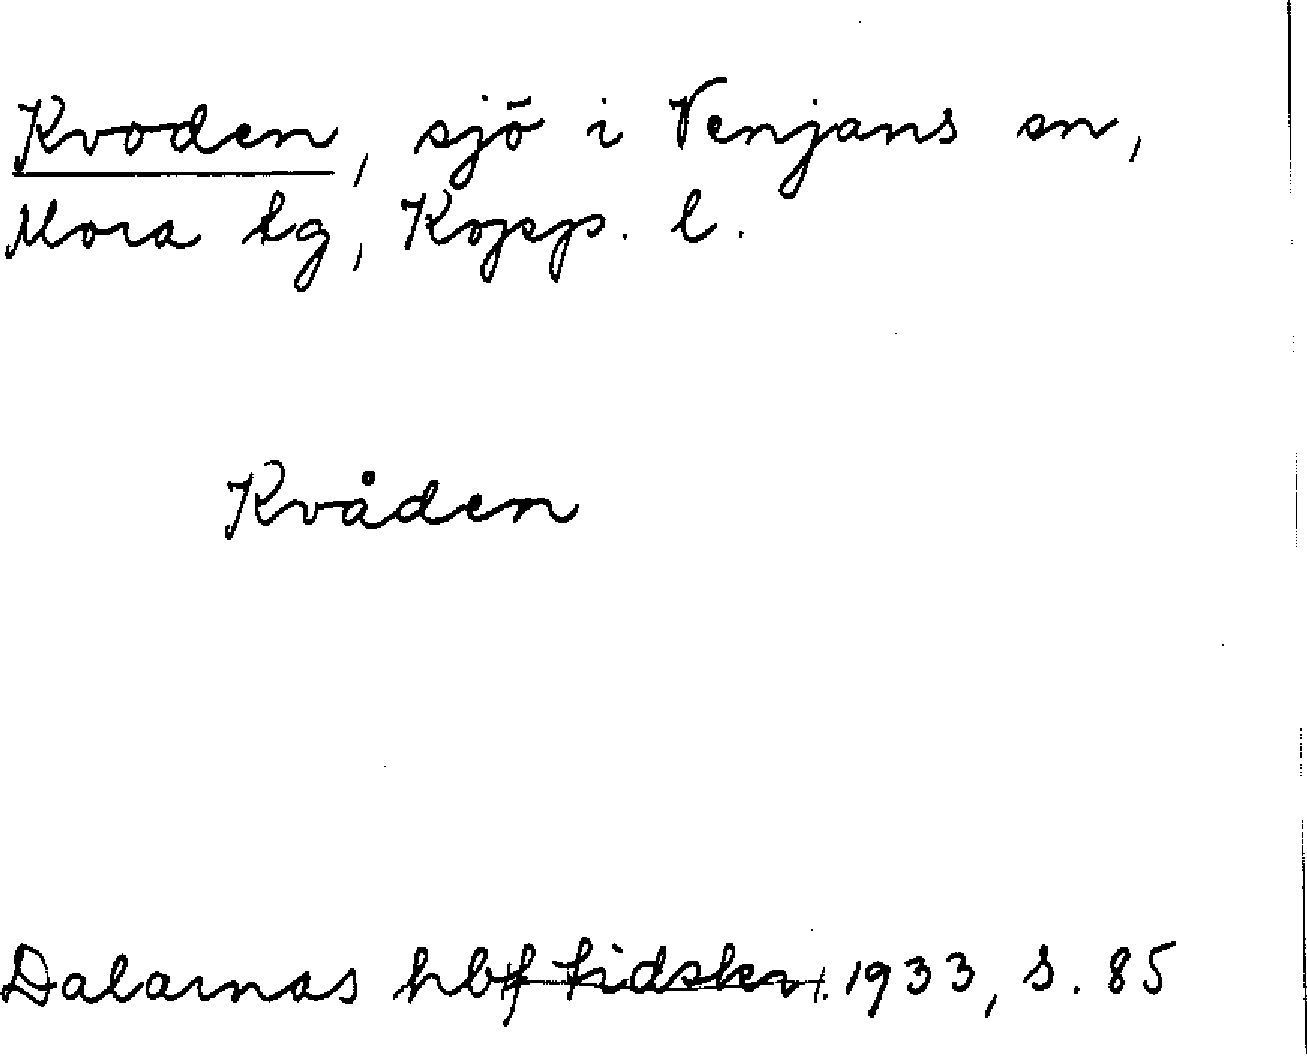 Kvoden, sjö i Venjans sn,
Mora tg, Kopp. l.
Kvåden
Dalarnas hbf tidskr. 1933, s. 85